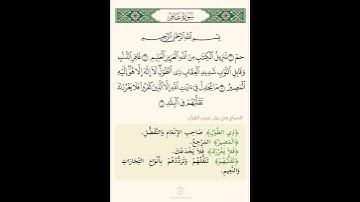 سُورَةُ غَافِرٍ
بِسْمِ ٱللَّهِ ٱلرَّحْمَٰنِ ٱلرَّحِيمِ
حمٓ ۝١ تَنزِيلُ ٱلْكِتَٰبِ مِنَ ٱللَّهِ ٱلْعَزِيزِ ٱلْعَلِيمِ ۝٢ غَافِرِ ٱلذَّنۢبِ
وَقَابِلِ ٱلتَّوْبِ شَدِيدِ ٱلْعِقَابِ ذِى ٱلطَّوْلِ لَآ إِلَٰهَ إِلَّا هُوَ إِلَيْهِ
ٱلْمَصِيرُ ۝٣ مَا يُجَٰدِلُ فِىٓ ءَايَٰتِ ٱللَّهِ إِلَّا ٱلَّذِينَ كَفَرُوا۟ فَلَا يَغْرُرْكَ
تَقَلُّبُهُمْ فِى ٱلْبِلَٰدِ ۝٤
السراج في بيان غريب القرآن
﴿ذِي الطَّوْلِ﴾ صَاحِبِ الإِنْعَامِ وَالتَّفَضُّلِ.
﴿الْمَصِيرُ﴾ الْمَرْجِعُ.
﴿فَلَا يَغْرُرْكَ﴾ فَلَا يَخْدَعْكَ.
﴿تَقَلُّبُهُمْ﴾ تَنَقُّلُهُمْ وَتَرَدُّدُهُمْ بِأَنْوَاعِ التِّجَارَاتِ
وَالنَّعِيمِ.